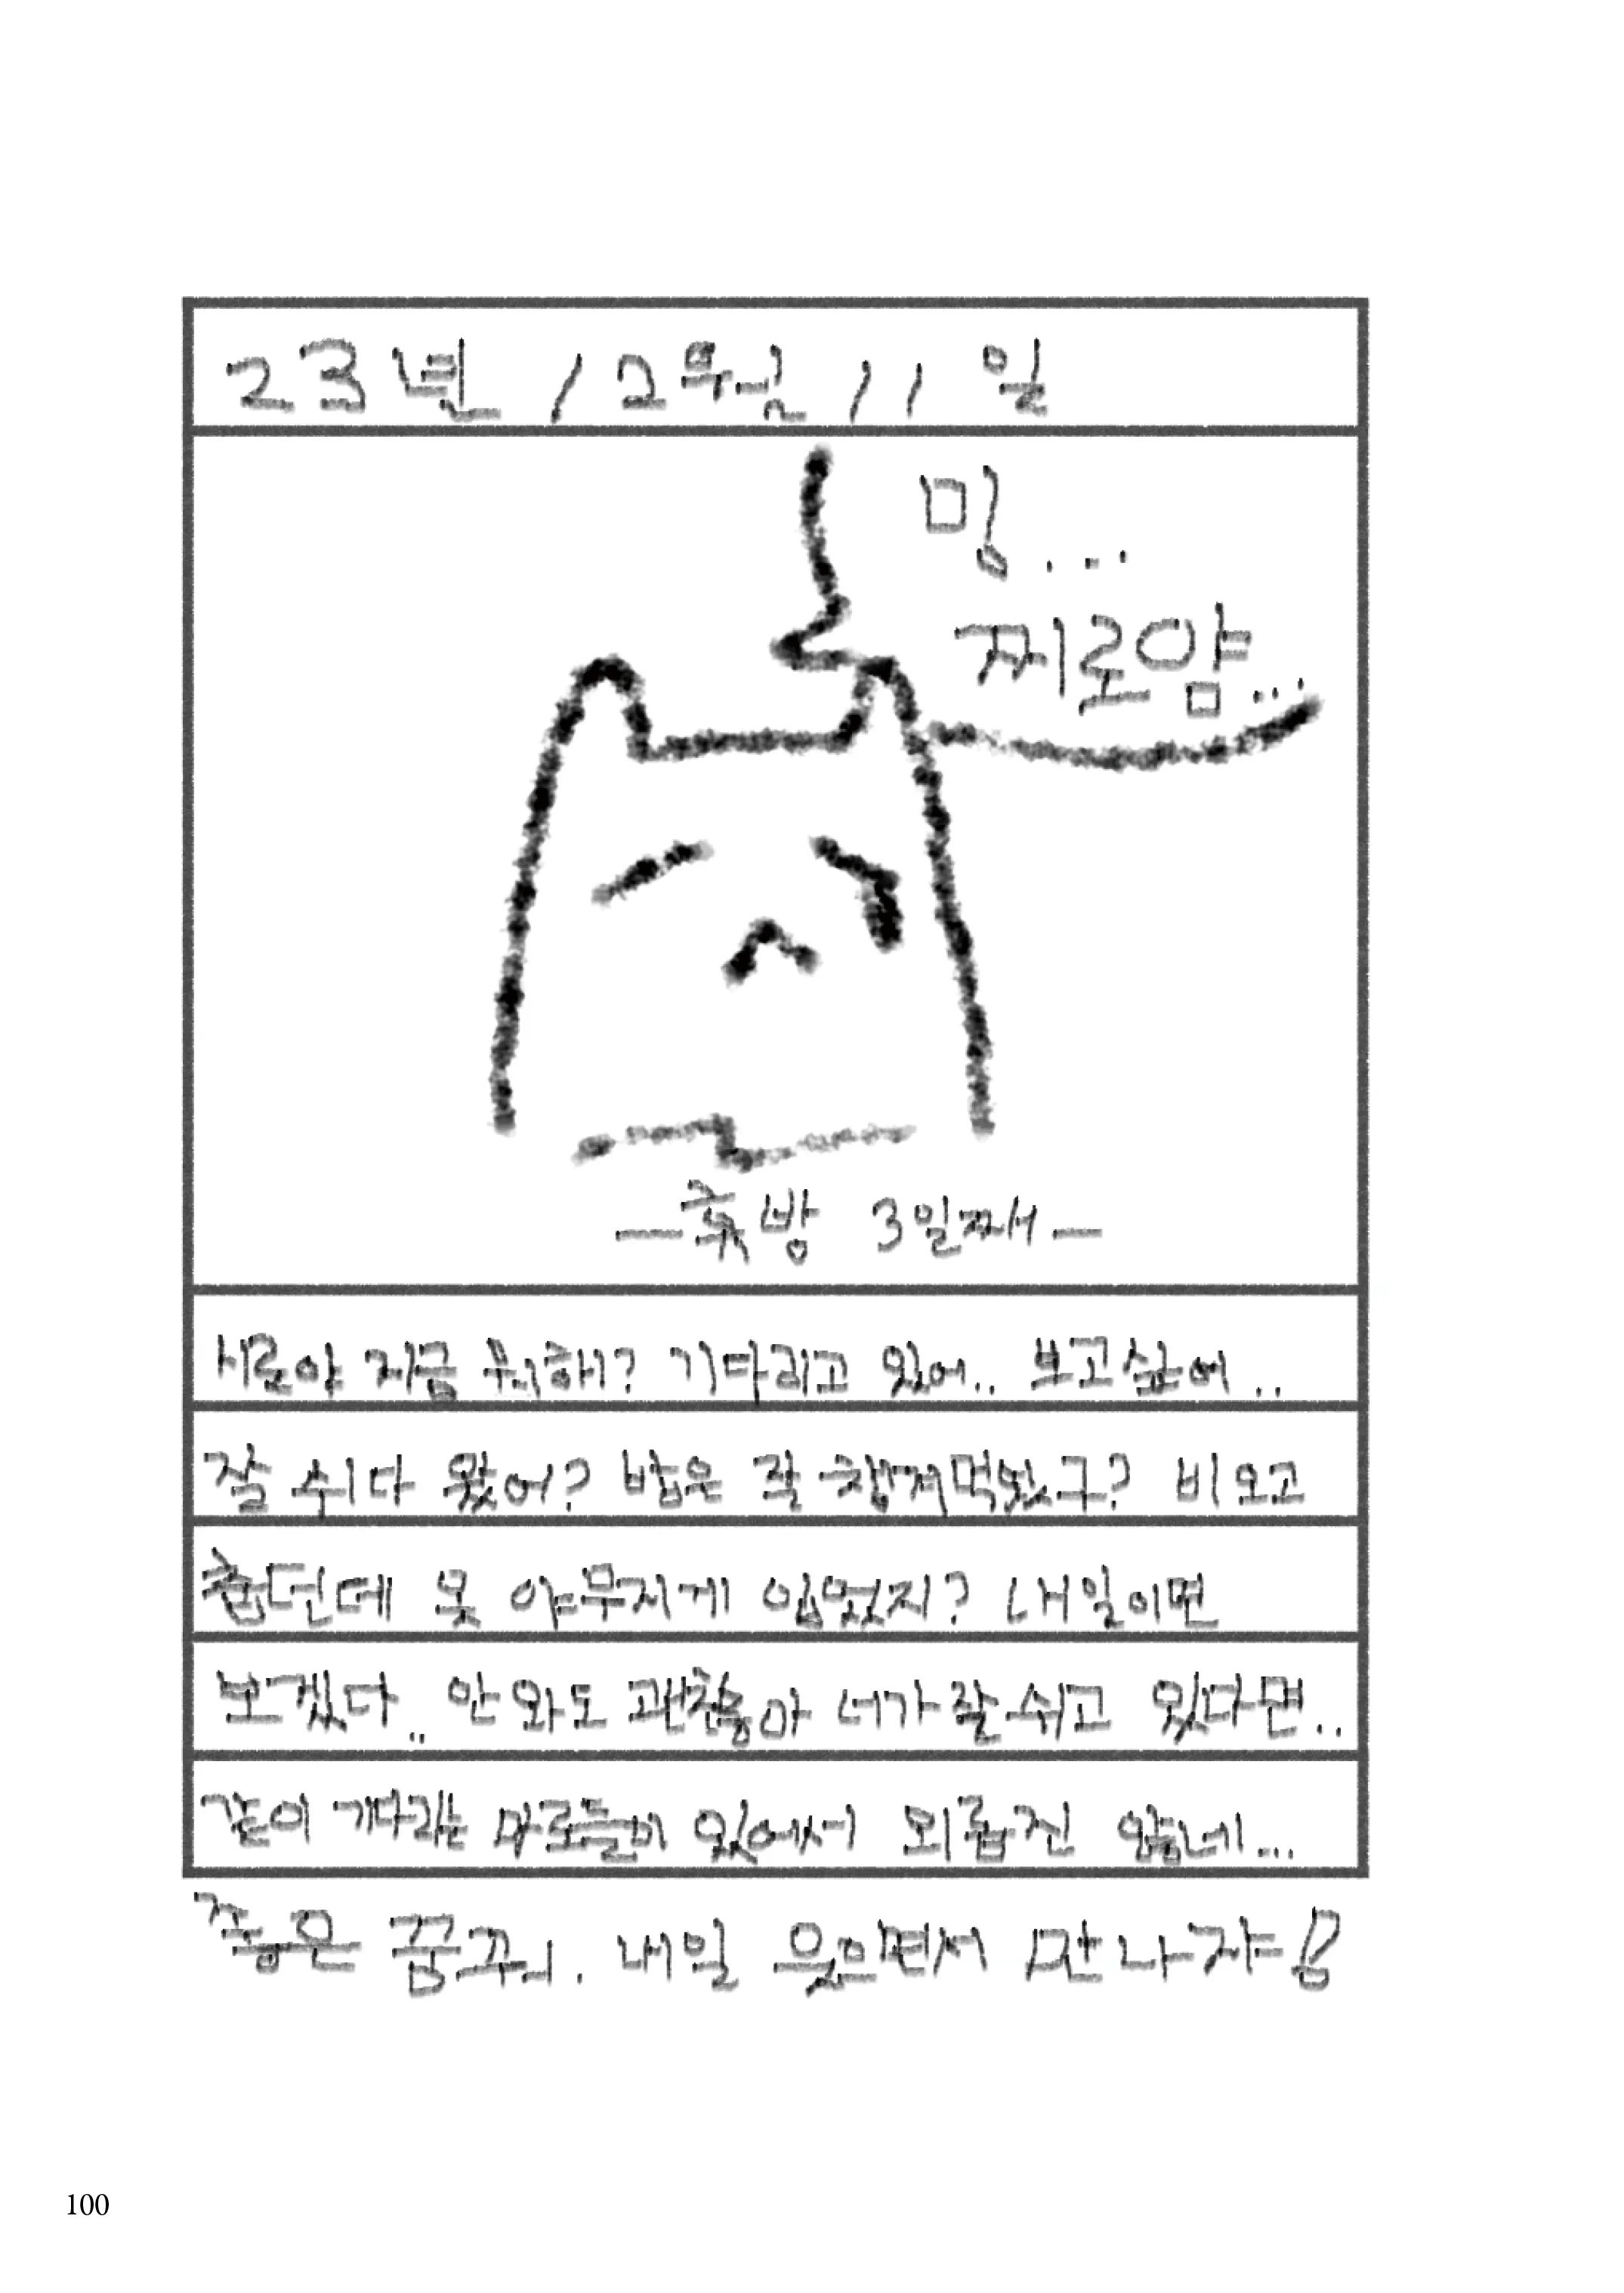 23년 12월 11일
밍...
찌로얌...
-휴방 3일째-
시로야 지금 뭐해? 기다리고 있어.. 보고싶어..
잘 쉬다 왔어? 밥은 잘 챙겨먹었구? 비오고
춥던데 옷 야무지게 입었지? 내일이면
보겠다.. 안 와도 괜찮아 너가 잘 쉬고 있다면..
같이 기다리는 마로들이 있어서 외롭진 않네...
좋은 꿈꾸고. 내일 웃으면서 만나자!
100